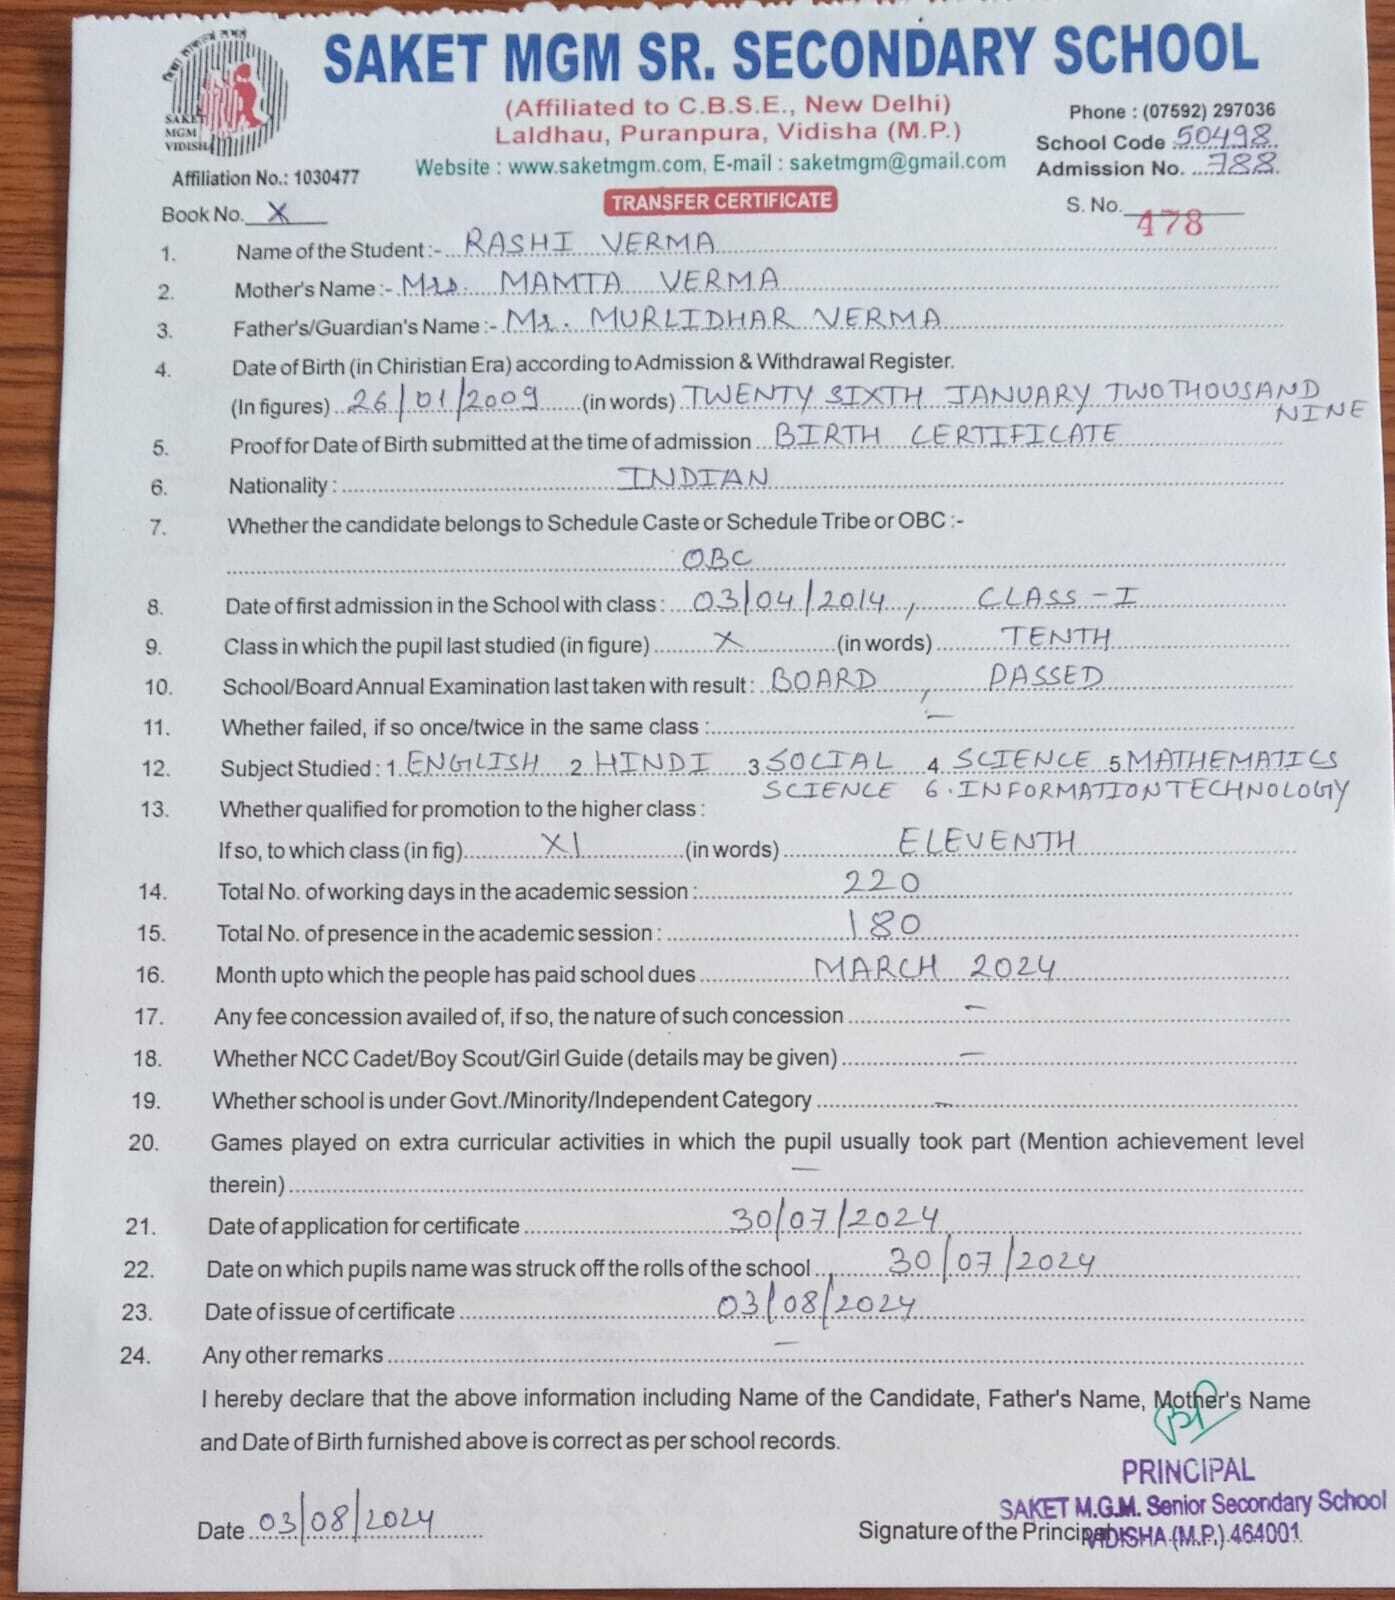 SAKET MGM SR. SECONDARY SCHOOL
(Affiliated to C.B.S.E., New Delhi)
Laldhau, Puranpura, Vidisha (M.P.)
Website : www.saketmgm.com, E-mail : saketmgm@gmail.com
Phone : (07592) 297036
School Code 50498
Admission No. 788
SAKET
MGM
VIDISHA
Affiliation No.: 1030477
TRANSFER CERTIFICATE
Book No. X
S. No. 478
1. Name of the Student :- RASHI VERMA
2. Mother's Name :- Mrs. MAMTA VERMA
3. Father's/Guardian's Name :- Mr. MURLIDHAR VERMA
4. Date of Birth (in Chiristian Era) according to Admission & Withdrawal Register.
(In figures) 26/01/2009 (in words) TWENTY SIXTH JANUARY TWO THOUSAND
NINE
5. Proof for Date of Birth submitted at the time of admission BIRTH CERTIFICATE
6. Nationality : INDIAN
7. Whether the candidate belongs to Schedule Caste or Schedule Tribe or OBC :-
OBC
8. Date of first admission in the School with class : 03/04/2014, CLASS - I
9. Class in which the pupil last studied (in figure) X (in words) TENTH
10. School/Board Annual Examination last taken with result : BOARD, PASSED
11. Whether failed, if so once/twice in the same class : -
12. Subject Studied : 1. ENGLISH 2. HINDI 3. SOCIAL 4. SCIENCE 5. MATHEMATICS
SCIENCE 6. INFORMATION TECHNOLOGY
13. Whether qualified for promotion to the higher class :
If so, to which class (in fig) XI (in words) ELEVENTH
14. Total No. of working days in the academic session : 220
15. Total No. of presence in the academic session : 180
16. Month upto which the people has paid school dues MARCH 2024
17. Any fee concession availed of, if so, the nature of such concession -
18. Whether NCC Cadet/Boy Scout/Girl Guide (details may be given) -
19. Whether school is under Govt./Minority/Independent Category -
20. Games played on extra curricular activities in which the pupil usually took part (Mention achievement level
therein) -
21. Date of application for certificate 30/07/2024
22. Date on which pupils name was struck off the rolls of the school 30/07/2024
23. Date of issue of certificate 03/08/2024
24. Any other remarks -
I hereby declare that the above information including Name of the Candidate, Father's Name, Mother's Name
and Date of Birth furnished above is correct as per school records.
PRINCIPAL
SAKET M.G.M. Senior Secondary School
VIDISHA (M.P.) 464001
Date 03/08/2024
Signature of the Principal